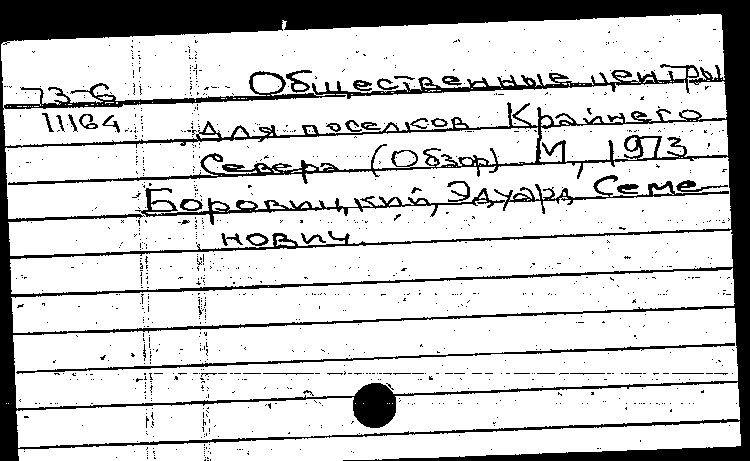 73-6 Общественные центры
11164 для поселков Крайнего
Севера (Обзор) М., 1973
Боровицкий, Эдуард Семе-
нович.